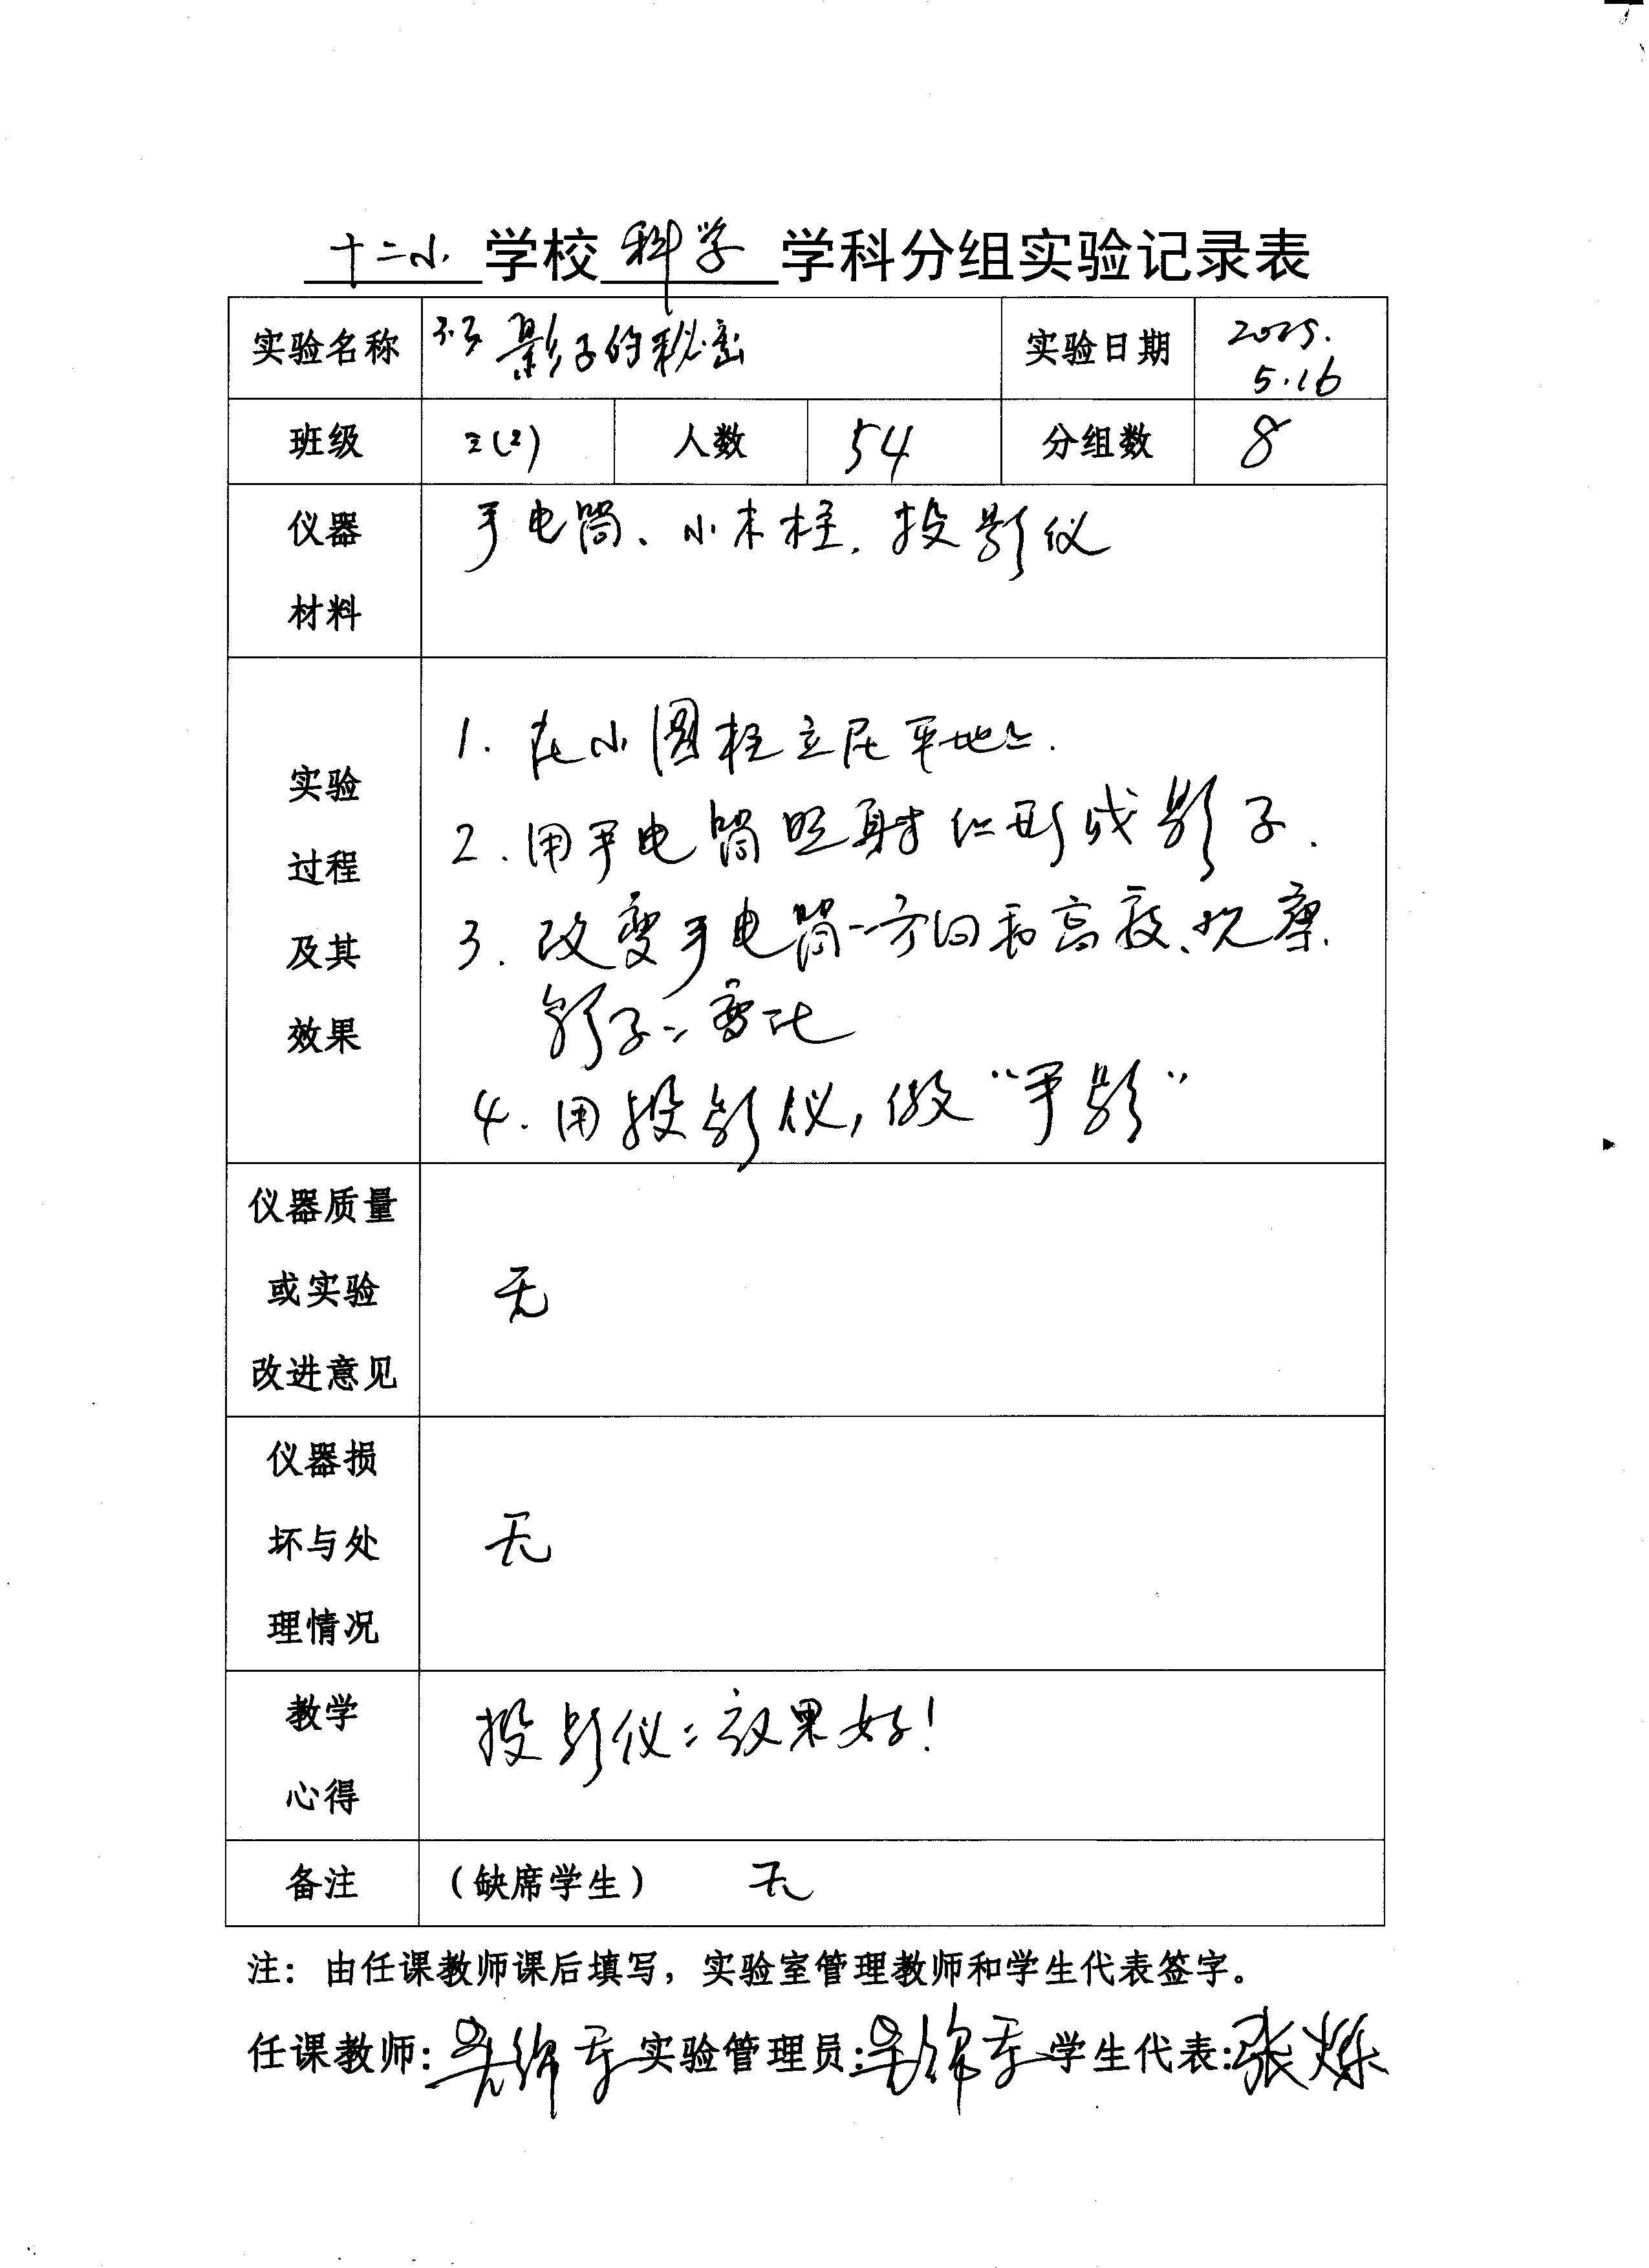 十二小 学校 科学 学科分组实验记录表
实验名称 影子的秘密 实验日期 2025.
5.16
班级 三(2) 人数 54 分组数 8
仪器
材料
手电筒、小木柱、投影仪
实验
过程
及其
效果
1. 在小圆柱立在平地上.
2. 用手电筒照射它形成影子.
3. 改变手电筒方向和高度、观察
影子变化
4. 用投影仪,做“手影”
仪器质量
或实验
改进意见
无
仪器损
坏与处
理情况
无
教学
心得
投影仪效果好!
备注 (缺席学生) 无
注:由任课教师课后填写,实验室管理教师和学生代表签字。
任课教师: 实验管理员: 学生代表:张烁